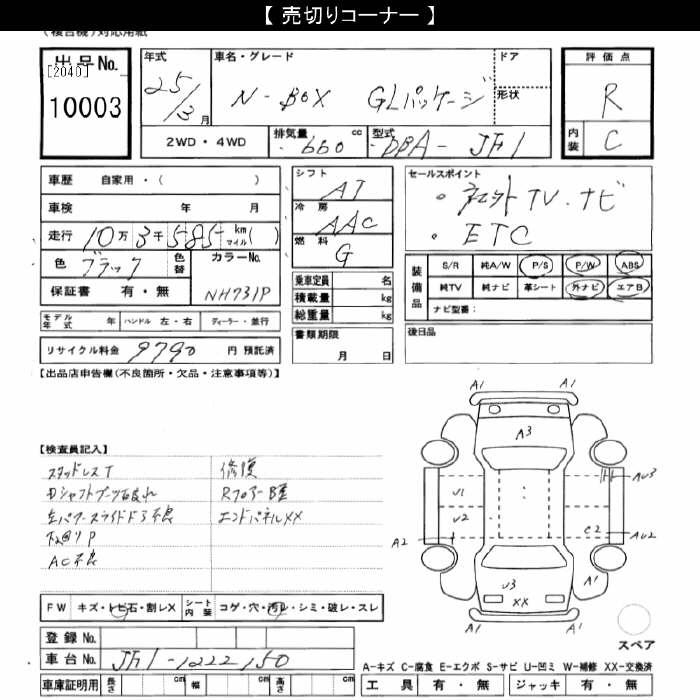 【 売切りコーナー 】
(複合機)対応用紙
出品No.
[2040]
10003
年式
25/3月
車名・グレード
N-BOX GLパッケージ
ドア
形状
2WD・4WD
排気量 660 cc
型式 DBA-JF1
評価点
R
内装 C
車歴 自家用・( )
車検 年 月
走行 10万3千585 km マイル( )
色 ブラック 色替
カラーNo. NH731P
保証書 有・無
モデル年式 年 ハンドル 左・右 ディーラー・並行
リサイクル料金 9790 円 預託済
シフト AT
冷房 AAC
燃料 G
乗車定員 名
積載量 kg
総重量 kg
書類期限
月 日
セールスポイント
・ TV.ナビ
・ETC
装備品
S/R 純A/W P/S P/W ABS
純TV 純ナビ 革シート 外ナビ エアB
ナビ型番:
後日品
【出品店申告欄(不良箇所・欠品・注意事項等)】
【検査員記入】
スタッドレスT
左パワースライドドア不良
AC不良
修復
エンドパネルXX
FW キズ・トビ石・割レX
シート内装 コゲ・穴・汚レ・シミ・破レ・スレ
登録No.
車台No. JF1-1222150
車庫証明用 長さ cm 幅 cm 高さ cm
A1 A1
A3
U1
U2
A2
AU3
C2
AU2
A1
U3
XX
A1 A1
スペア
A-キズ C-腐食 E-エクボ S-サビ U-凹ミ W-補修 XX-交換済
工具 有・無 ジャッキ 有・無